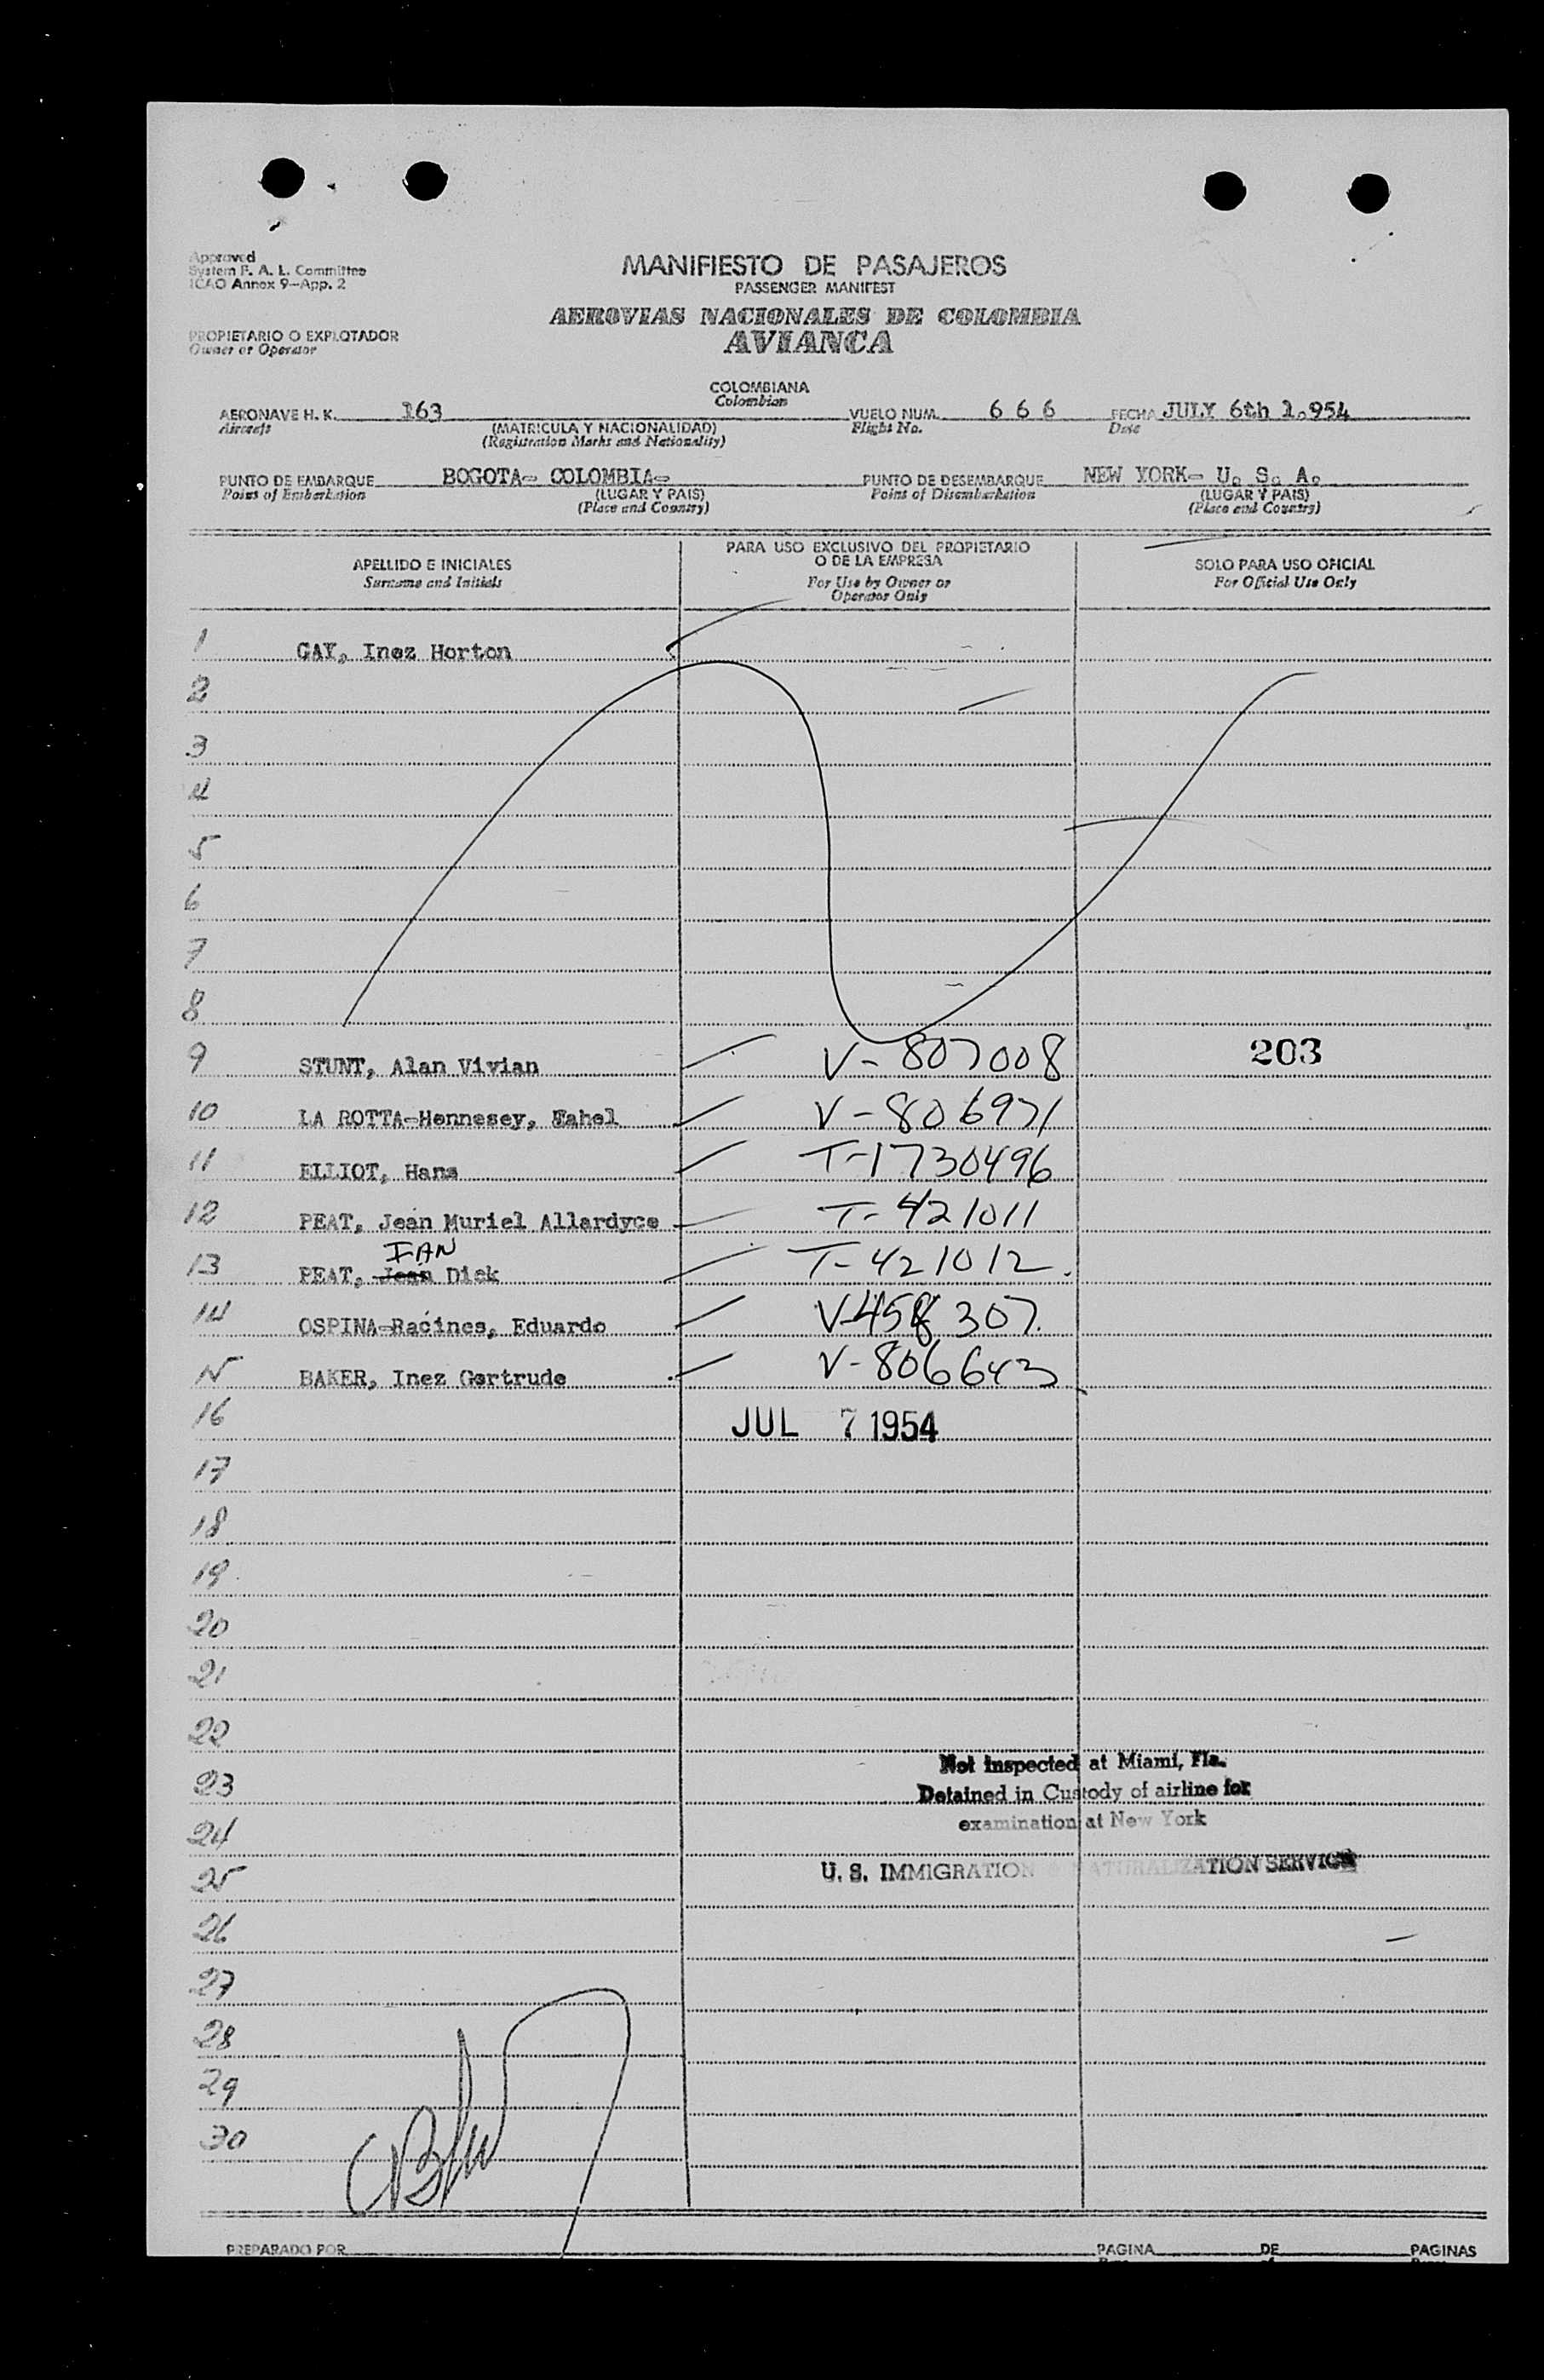 Approved
System F. A. L. Committee
ICAO Annex 9-App. 2
MANIFIESTO DE PASAJEROS
PASSENGER MANIFEST
AEROVIAS NACIONALES DE COLOMBIA
AVIANCA
PROPIETARIO O EXPLOTADOR
Owner or Operator
COLOMBIANA
Colombian
AERONAVE H. K. 163 VUELO NUM. 6 6 6 FECHA JULY 6th 1.954
Aircraft (MATRICULA Y NACIONALIDAD) Flight No. Date
(Registration Marks and Nationality)
PUNTO DE EMBARQUE BOGOTA- COLOMBIA- PUNTO DE DESEMBARQUE NEW YORK- U. S. A.
Point of Embarkation (LUGAR Y PAIS) Point of Disembarkation (LUGAR Y PAIS)
(Place and Country) (Place and Country)
APELLIDO E INICIALES PARA USO EXCLUSIVO DEL PROPIETARIO O DE LA EMPRESA SOLO PARA USO OFICIAL
Surname and Initials For Use by Owner or Operator Only For Official Use Only
1 GAY, Inez Horton
2
3
4
5
6
7
8
9 STUNT, Alan Vivian V-807008 203
10 LA ROTTA-Hennesey, V-806971
11 ELLIOT, Hans T-1730496
12 PEAT, Jean Muriel Allardyce T-421011
IAN
13 PEAT, Jean Dick T-421012.
14 OSPINA-Racines, Eduardo V-458 307.
15 BAKER, Inez Gertrude V-806643
16 JUL 7 1954
17
18
19
20
21
22
Not inspected at Miami, Fla.
23 Detained in Custody of airline for
24 examination at New York
25 U. S. IMMIGRATION & NATURALIZATION SERVICE
26
27
28
29
30
PREPARADO POR PAGINA DE PAGINAS